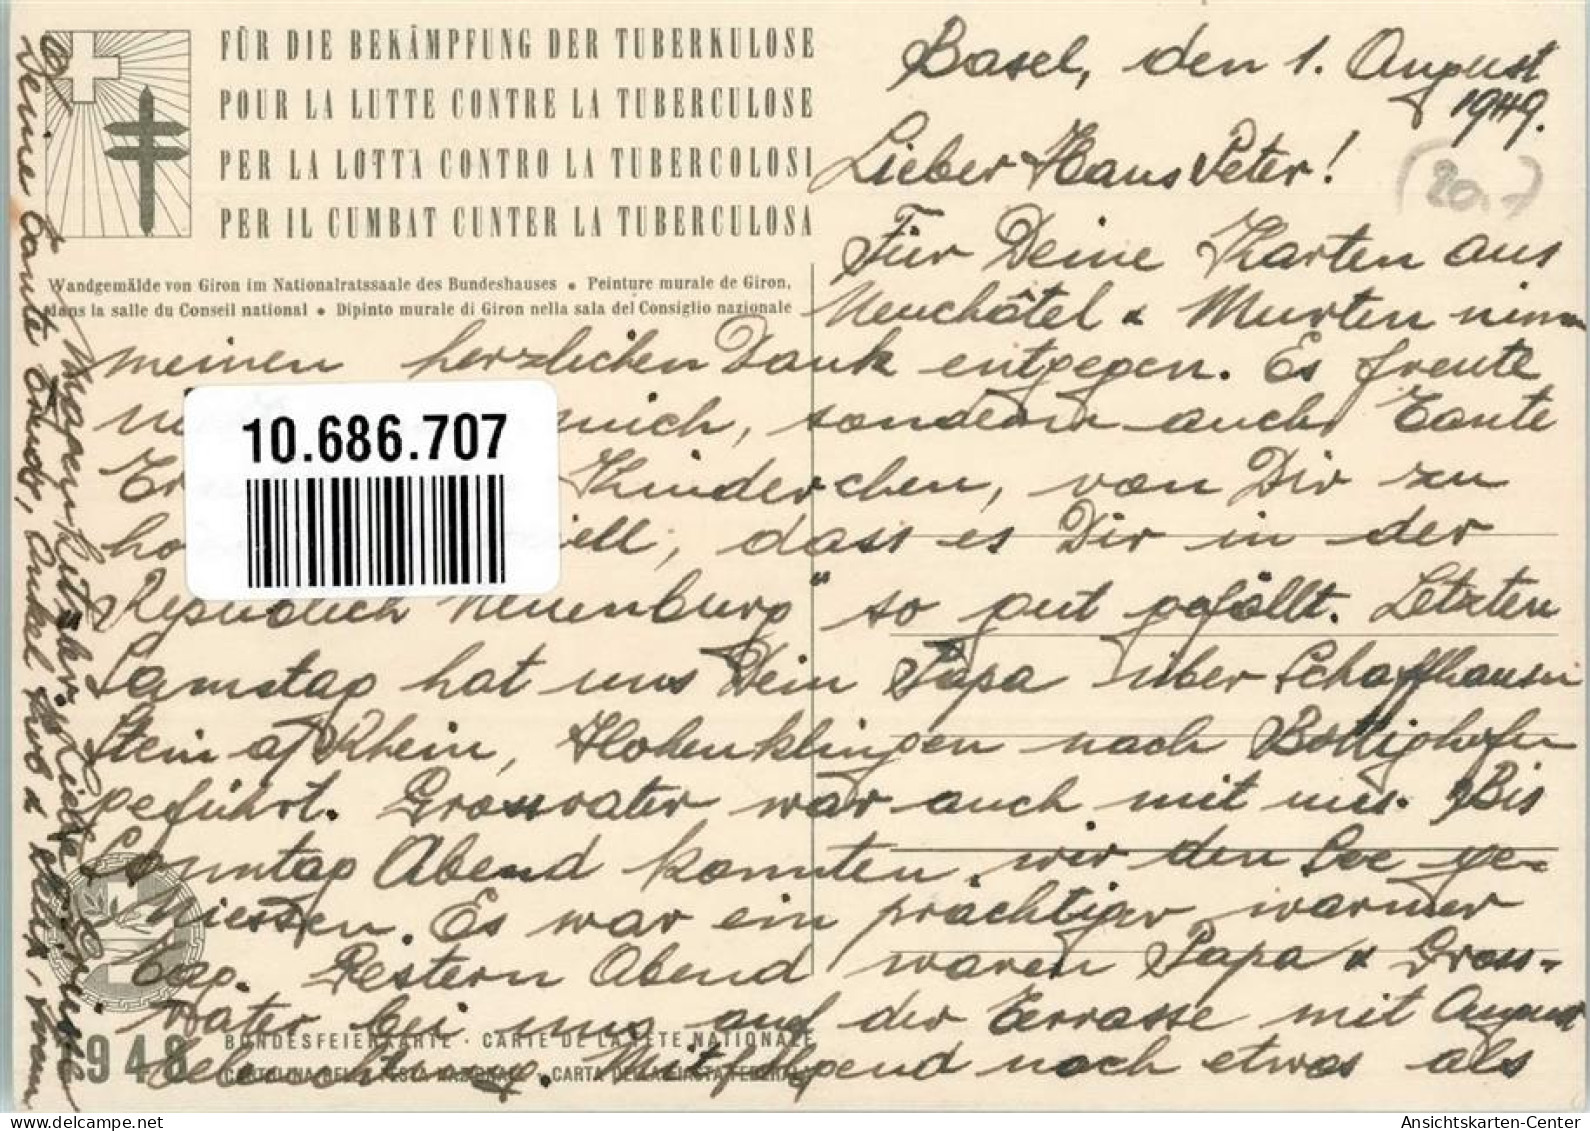 FÜR DIE BEKÄMPFUNG DER TUBERKULOSE
POUR LA LUTTE CONTRE LA TUBERCULOSE
PER LA LOTTA CONTRO LA TUBERCOLOSI
PER IL CUMBAT CUNTER LA TUBERCULOSA
Wandgemälde von Giron im Nationalratssaale des Bundeshauses • Peinture murale de Giron,
dans la salle du Conseil national • Dipinto murale di Giron nella sala del Consiglio nazionale
Basel, den 1. August
1949.
Lieber Hans Peter!
(20.-)
Für Deine Karten aus
Neuchâtel & Murten nimm
meinen herzlichen Dank entgegen. Es freute
mich, sondern auch Tante
Kinderchen, von Dir zu
dass es Dir in der
"Republich Neuenburg" so gut gefällt. Letzten
Samstag hat uns Dein Papa über Schaffhausen
Stein a/Rhein, Hohenklingen nach Bottighofen
geführt. Grossvater war auch mit uns. Bis
Sonntag Abend konnten wir den See ge-
niessen. Es war ein prächtiger warmer
Tag. Gestern Abend waren Papa & Gross-
vater bei uns auf der Terrasse mit August
beleuchtung. Mitfolgend noch etwas als
"Magenkitzler". Liebe Grüsse
Deine Tante Trudy, Onkel &
10.686.707
1948
BUNDESFEIERKARTE · CARTE DE LA FÊTE NATIONALE
CARTOLINA DELLA FESTA NAZIONALE · CARTA DELLA FIASTA FEDERALA
Ansichtskarten-Center